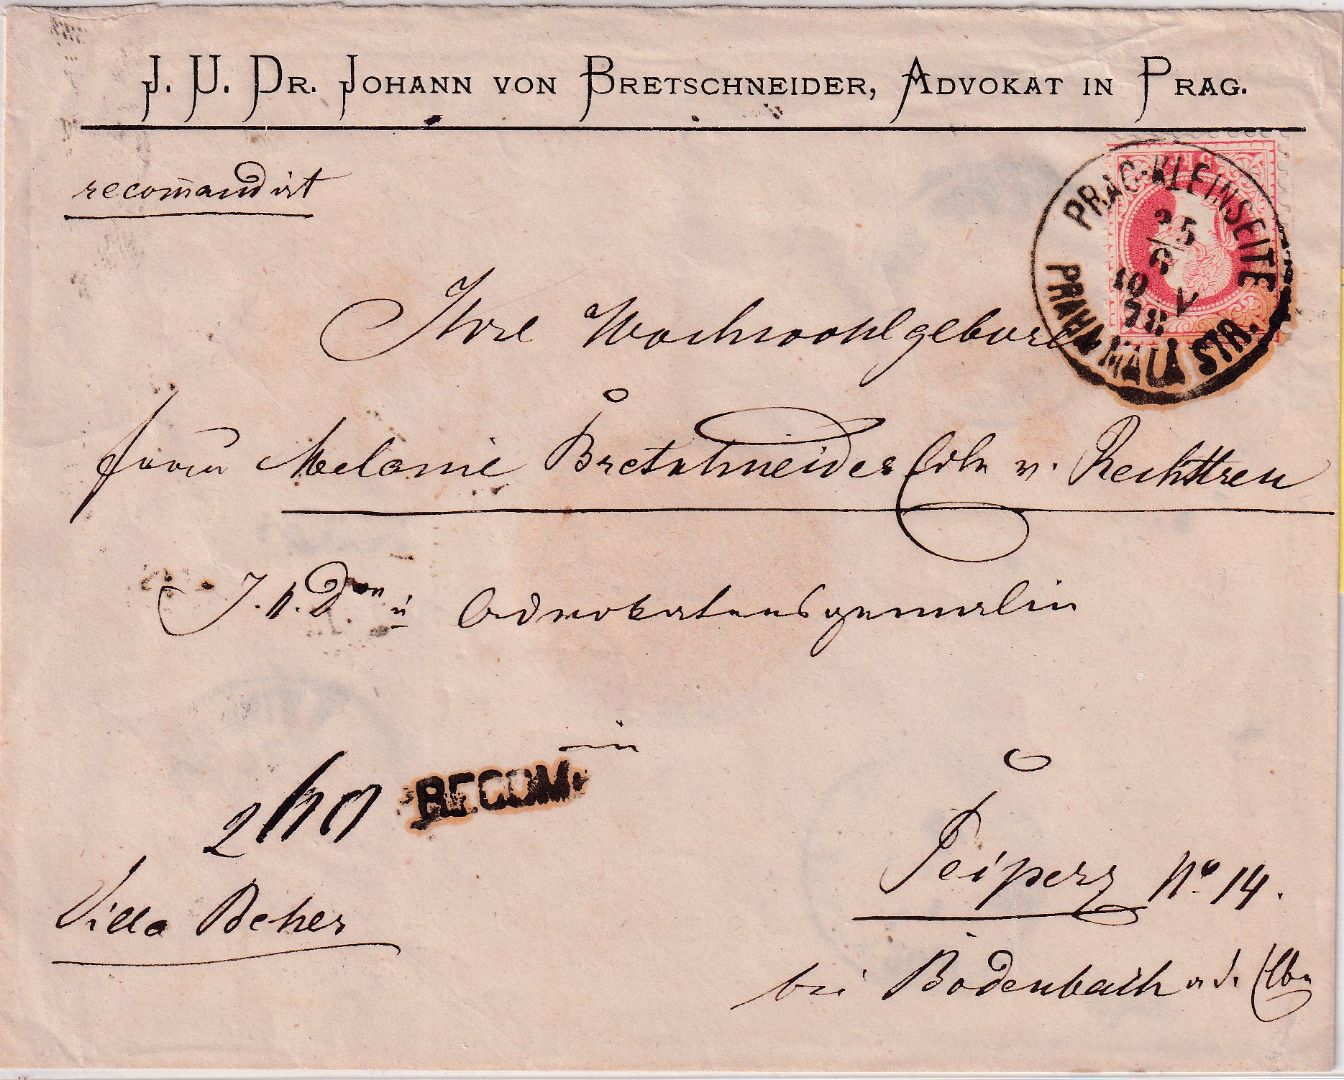 J. U. Dr. Johann von Bretschneider, Advokat in Prag.
recomandirt
PRAG-KLEINSEITE
25
6
10 V
78
PRAHA MALÁ STR.
Ihre Hochwohlgebore
Frau Melanie Bretschneider Edle v. Rechttreu
Advokatensgemalin
in
RECOM.
Villa Beher
Peiperz No 14.
bei Bodenbach a. d. Elbe